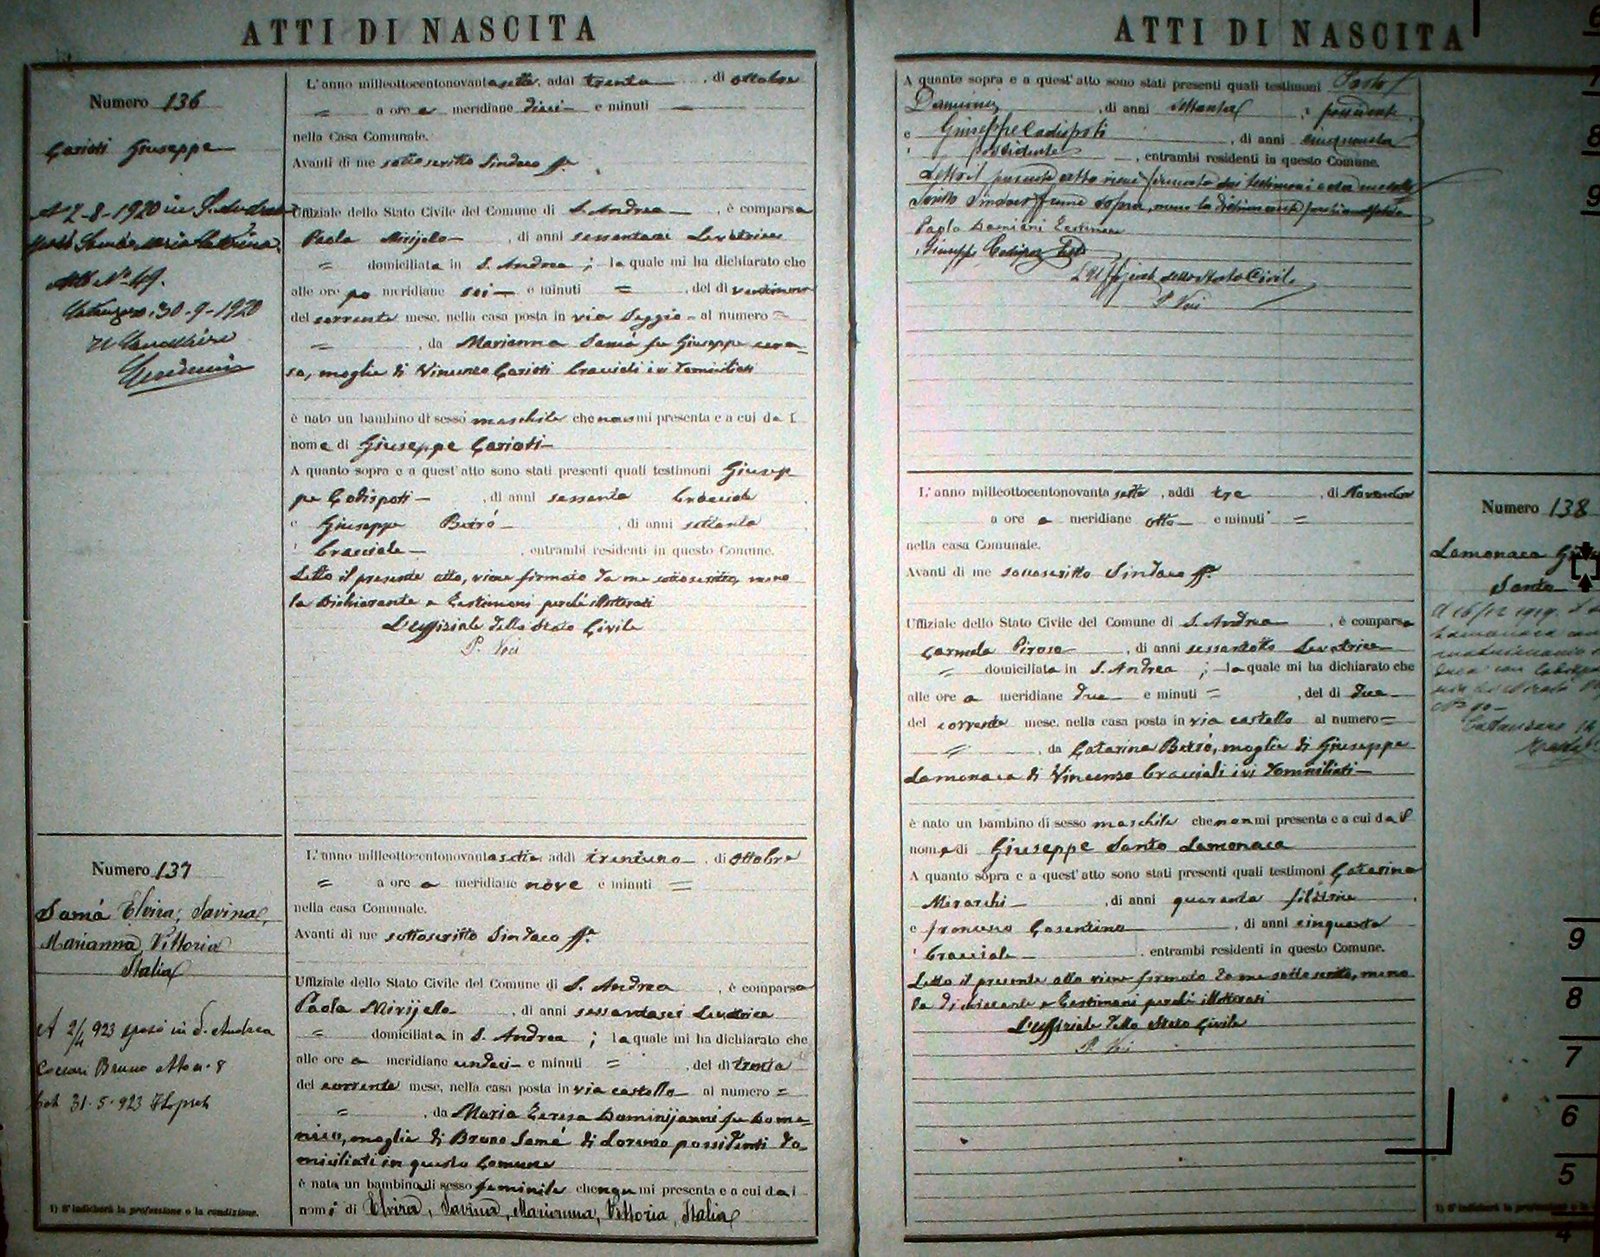 ATTI DI NASCITA
Numero 136
Carioti Giuseppe
A 2-8-1920 in S. Andrea
sposò Samà Maria Caterina
Atto No 49.
Catanzaro 30-9-1920
Il Cancelliere
L'anno milleottocentonovantasette, addì trenta, di ottobre
" a ore a meridiane dieci e minuti —
nella Casa Comunale.
Avanti di me sottoscritto Sindaco ff.
Uffiziale dello Stato Civile del Comune di S. Andrea, è comparsa
Paola Mirijello, di anni sessantasei Levatrice
" domiciliata in S. Andrea; la quale mi ha dichiarato che
alle ore po meridiane sei e minuti =, del dì ventinove
del corrente mese, nella casa posta in via Seggio al numero =
", da Marianna Samà fu Giuseppe
moglie di Vincenzo Carioti Bracciali ivi domiciliati
è nato un bambino di sesso maschile che non mi presenta e a cui da il
nome di Giuseppe Carioti
A quanto sopra e a quest'atto sono stati presenti quali testimoni Giusep
pe Codispoti, di anni sessanta Bracciale
e Giuseppe Betrò, di anni settanta
Bracciale, entrambi residenti in questo Comune.
Letto il presente atto, viene firmato da me sottoscritto, meno
la Dichiarante e Testimoni perchè illetterati
L'Uffiziale dello Stato Civile
P. Voci
Numero 137
Samà Elvira, Savina,
Marianna, Vittoria
Italia
A 2/4 923 sposò in S. Andrea
Bruno atto n. 8
31-5-923
1) S'indicherà la professione o la condizione.
L'anno milleottocentonovantasette addì trentuno, di ottobre
= a ore a meridiane nove e minuti =
nella casa Comunale.
Avanti di me sottoscritto Sindaco ff.
Uffiziale dello Stato Civile del Comune di S. Andrea, è comparsa
Paola Mirijello, di anni sessantasei Levatrice
" domiciliata in S. Andrea; la quale mi ha dichiarato che
alle ore a meridiane undeci e minuti =, del dì trenta
del corrente mese, nella casa posta in via castello al numero =
", da Maria Teresa Dominijanni fu Dome-
nico, moglie di Bruno Samà di Lorenzo possidenti do-
miciliati in questo Comune
è nata un bambina di sesso feminile che non mi presenta e a cui da i
nomi di Elvira, Savina, Marianna, Vittoria, Italia
ATTI DI NASCITA
A quanto sopra e a quest'atto sono stati presenti quali testimoni Paolo
Damiani, di anni settanta, possidente
e Giuseppe Codispoti, di anni cinquanta
possidente, entrambi residenti in questo Comune.
Letto il presente atto viene firmato dai testimoni e da me sotto
scritto Sindaco ff. come sopra, meno la dichiarante perchè
Paolo Damiani Testimone
Giuseppe Codispoti
L'Uffiziale dello Stato Civile
P. Voci
L'anno milleottocentonovantasette, addì tre, di Novembre
a ore a meridiane otto e minuti =
nella casa Comunale.
Avanti di me sottoscritto Sindaco ff.
Uffiziale dello Stato Civile del Comune di S. Andrea, è comparsa
Carmela Piroso, di anni sessantotto Levatrice
" domiciliata in S. Andrea; la quale mi ha dichiarato che
alle ore a meridiane due e minuti =, del dì due
del corrente mese, nella casa posta in via castello al numero =
", da Catarina Betrò, moglie di Giuseppe
Lamonaca di Vincenzo Bracciali ivi domiciliati
è nato un bambino di sesso maschile che non mi presenta e a cui da il
nome di Giuseppe Santo Lamonaca
A quanto sopra e a quest'atto sono stati presenti quali testimoni Catarina
Mirarchi, di anni quaranta filatrice
e Francesco Cosentino, di anni cinquanta
Bracciale, entrambi residenti in questo Comune.
Letto il presente atto viene firmato da me sottoscritto, meno
la dichiarante e Testimoni perchè illetterati
L'Uffiziale dello Stato Civile
P. Voci
Numero 138
Lamonaca
Santo
Lamonaca
matrimonio
Catanzaro
9
9
8
7
6
5
4